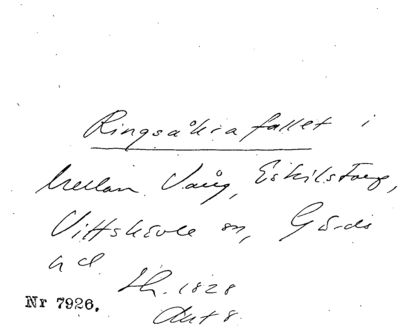 Ringsåkra fallet i
Mellan Vång, Eskilstorp,
Vittskövle sn, Gärds
hd.
Nr 7926. Sk. 1828
Akt 8